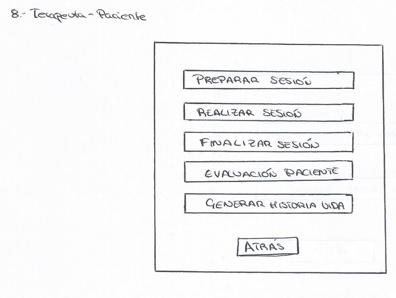 8.- Terapeuta - Paciente
PREPARAR SESIÓN
REALIZAR SESIÓN
FINALIZAR SESIÓN
EVALUACIÓN PACIENTE
GENERAR HISTORIA VIDA
ATRÁS